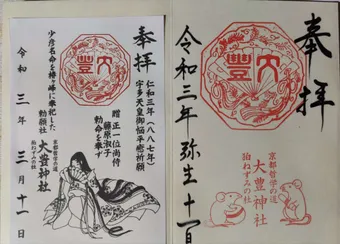 奉拝
大豐
令和三年弥生十一日
京都哲学の道
大豊神社
狛ねずみの社
奉拝
仁和三年(八八七年)
宇多天皇御悩平癒祈願
贈 正一位尚侍
藤原淑子
勅命を奉ず
大豐
少彦名命を椿ヶ峰に奉祀した
勅願社
京都哲学の道
大豊神社
狛ねずみの社
令和 三年 三月十一日